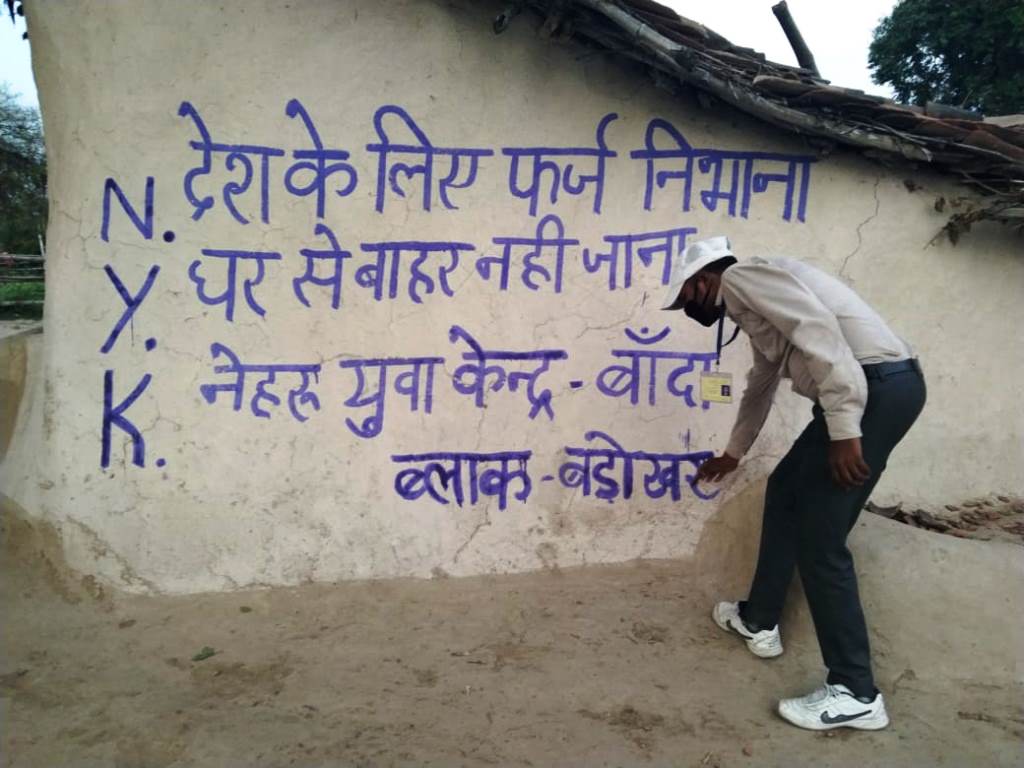 N. देश के लिए फर्ज निभाना
Y. घर से बाहर नही जाना
K. नेहरू युवा केन्द्र - बाँदा
ब्लाक - बड़ोखर